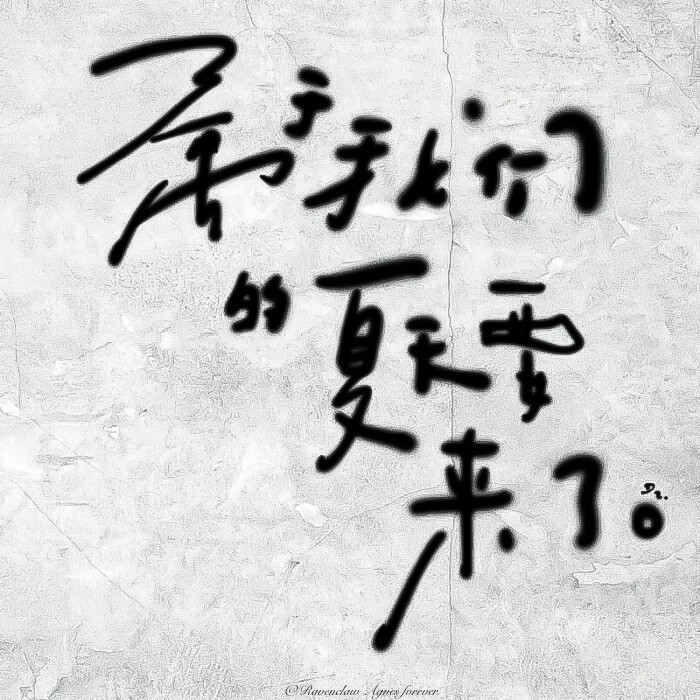 属于我们
的夏天要
来了。
@Ravenclaw Agnes forever